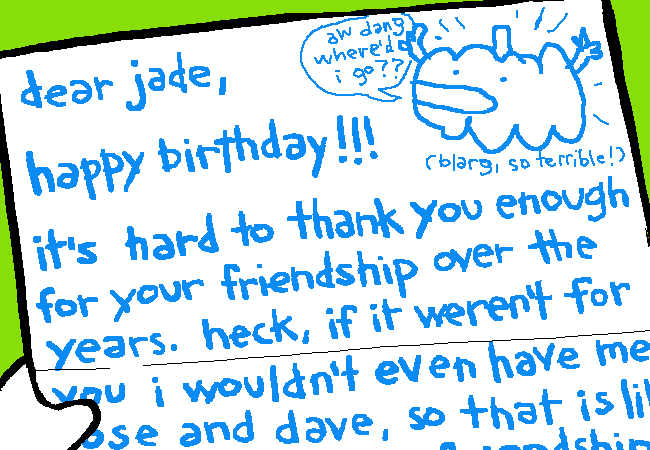 aw dang
where'd
i go??
dear jade,
(blarg, so terrible!)
happy birthday!!!
it's hard to thank you enough
for your friendship over the
years. heck, if it weren't for
you i wouldn't even have me
ose and dave, so that is li